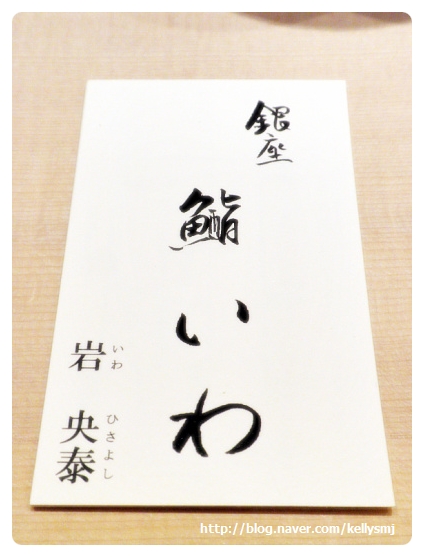 銀座
鮨いわ
岩 央泰
いわ ひさよし
http://blog.naver.com/kellysmj